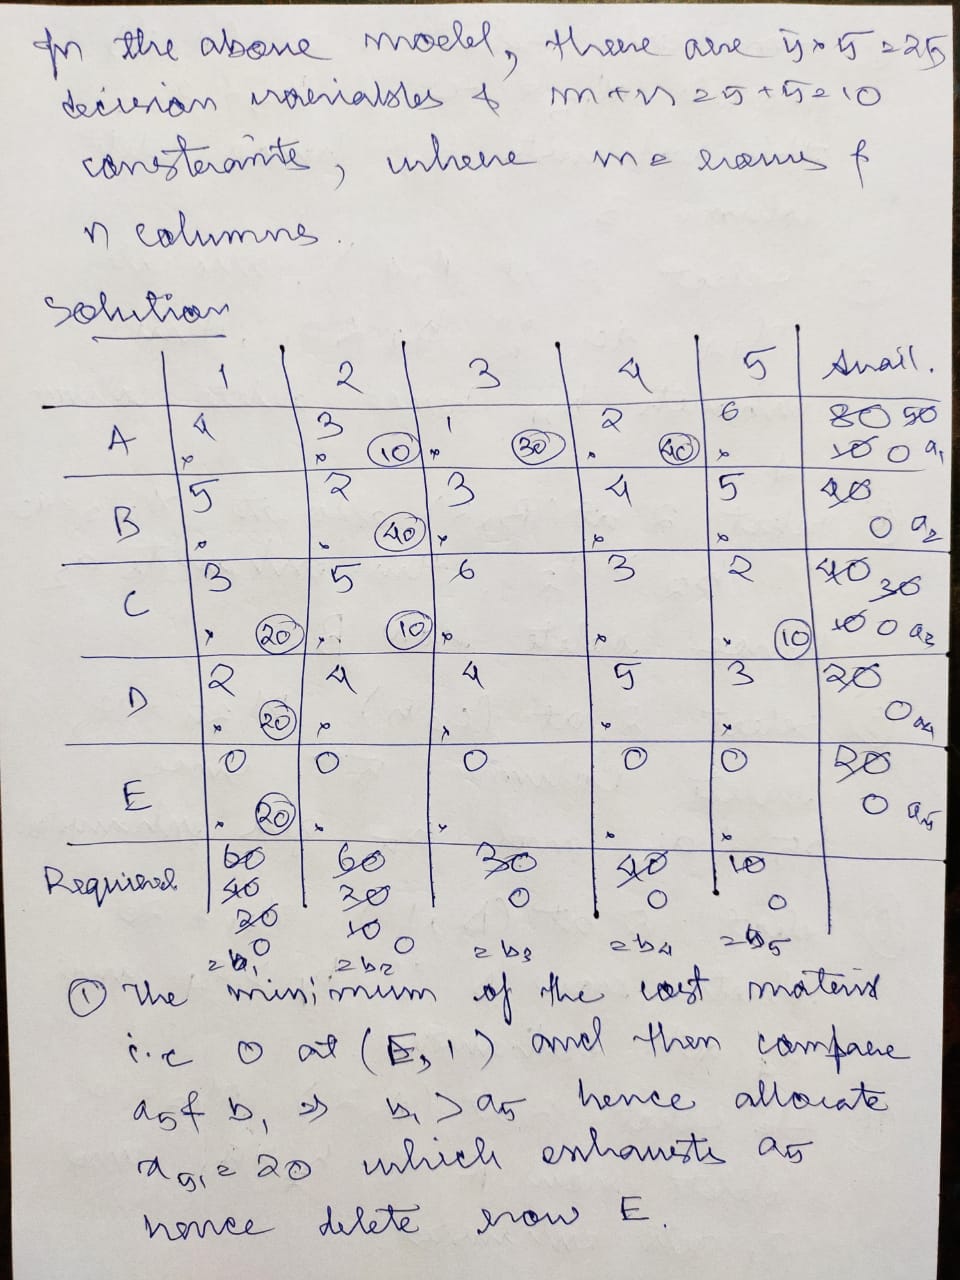 In the above model, there are 5 × 5 = 25
decision variables & m + n = 5 + 5 = 10
constraints, where m = rows &
n columns.
Solution
1 2 3 4 5 Avail.
A 4 3 1 2 6 80 50
10 30 40 10 0 a1
B 5 2 3 4 5 40
40 0 a2
C 3 5 6 3 2 40 30
20 10 10 10 0 a3
D 2 4 4 5 3 20
20 0 a4
E 0 0 0 0 0 20
20 0 a5
Required 60 60 30 40 10
40 20 0 0 0
20 10
0 0
= b1 = b2 = b3 = b4 = b5
① The minimum of the cost matrix
i.e 0 at (E, 1) and then compare
a5 & b1 ⇒ b1 > a5 hence allocate
x51 = 20 which exhausts a5
hence delete row E.